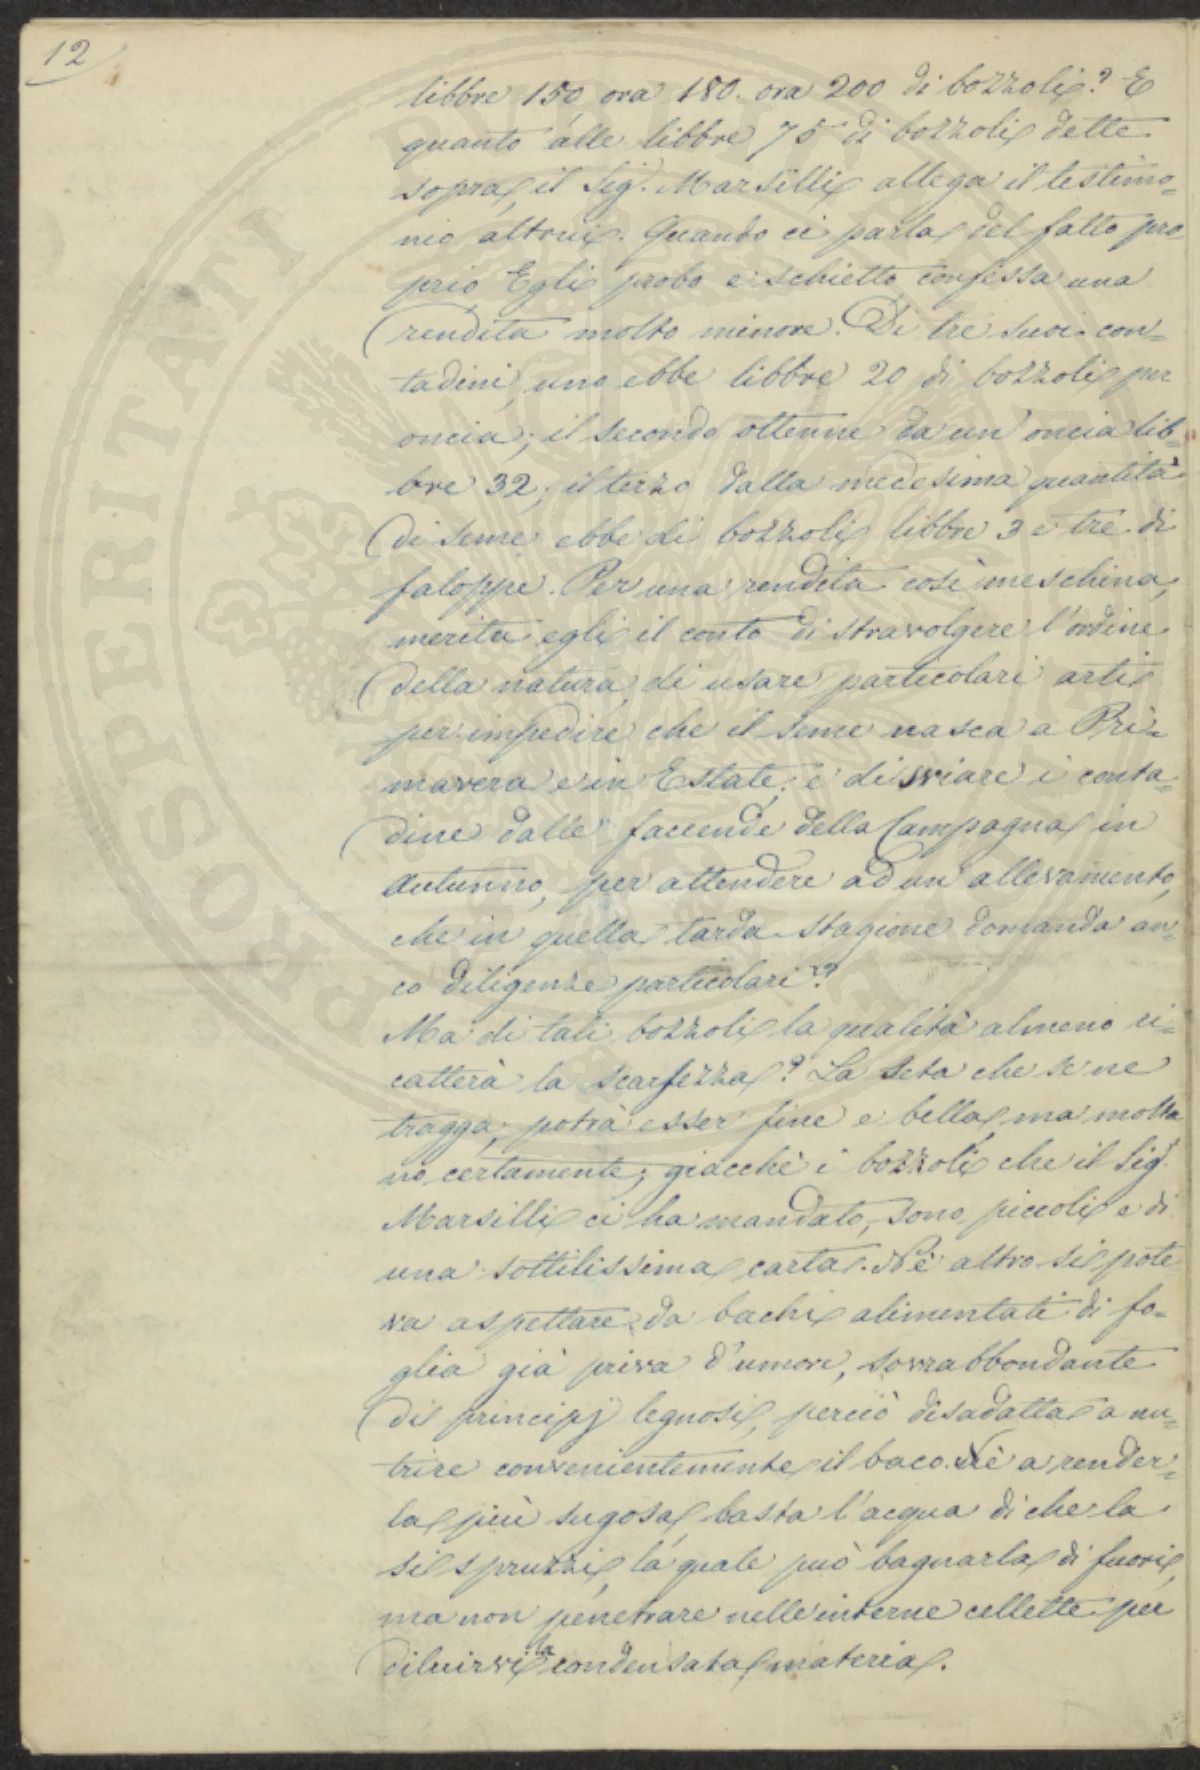 12
libbre 150, ora 180. ora 200 di bozzoli? E
quanto alle libbre 75 di bozzoli dette
sopra, il Sig.r Marsilli allega il testimo=
nio altrui. Quando ci parla del fatto pro
prio Egli probo e schietto confessa una
rendita molto minore. Di tre suoi con=
tadini, uno ebbe libbre 20 di bozzoli per
oncia; il secondo ottenne da un' oncia lib=
bre 32; il terzo dalla medesima quantità
di seme ebbe di bozzoli libbre 3 e tre di
faloppe. Per una rendita così meschina,
merita egli il conto di stravolgere l'ordine
della natura, di usare particolari arti
per impedire che il seme nasca a Pri=
mavera e in Estate; e disviare i conta=
dine dalle faccende della Campagna in
Autunno, per attendere ad un allevamento,
che in quella tarda stagione domanda an=
co diligenze particolari?
Ma di tali bozzoli la qualità almeno ri=
catterà la scarsezza? La seta che se ne
tragga, potrà esser fine e bella, ma molta
no certamente; giacchè i bozzoli che il Sig.r
Marsilli ci ha mandato, sono piccoli e di
una sottilissima carta. Nè altro si pote
va aspettare da bachi alimentati di fo=
glia già priva d'umore, sovrabbondante
di principj legnosi, perciò disadatta a nu=
trire convenientemente il baco. Nè a render=
la più sugosa, basta l'acqua di che la
si spruzzi, la quale può bagnarla di fuori,
ma non penetrare nelle interne cellette per
diluirvi la condensata materia.
PROSPERITATI PVBLICAE